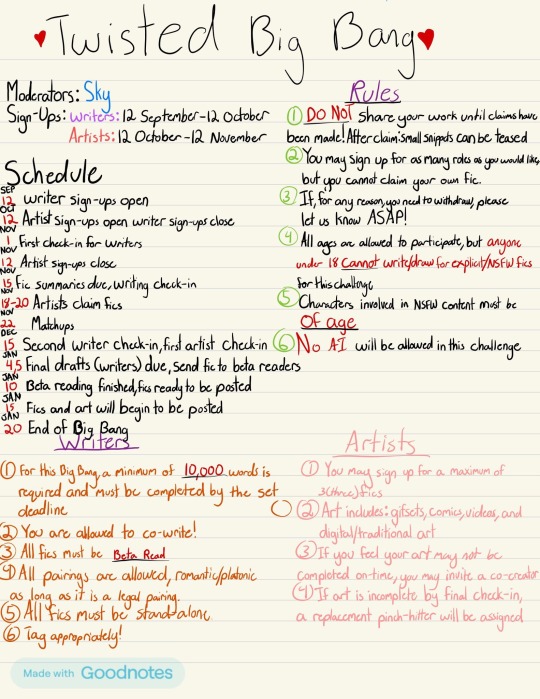 Twisted Big Bang
Moderators: Sky
Sign-Ups: Writers: 12 September-12 October
Artists: 12 October-12 November
Schedule
SEP 12 Writer sign-ups open
OCT 12 Artist sign-ups open writer sign-ups close
NOV 1 First check-in for writers
NOV 12 Artist sign-ups close
NOV 15 Fic summaries due, writing check-in
NOV 18-20 Artists claim fics
NOV 22 Matchups
DEC 15 Second writer check-in, first artist check-in
JAN 4,5 Final drafts (writers) due, send fic to beta readers
JAN 10 Beta reading finished, fics ready to be posted
JAN 15 Fics and art will begin to be posted
JAN 20 End of Big Bang
Rules
1 DO NOT share your work until claims have
been made! After claim: small snippets can be teased
2 You may sign up for as many roles as you would like,
but you cannot claim your own fic.
3 If, for any reason, you need to withdraw, please
let us know ASAP!
4 All ages are allowed to participate, but anyone
under 18 cannot write/draw for explicit/NSFW fics
for this challenge
5 Characters involved in NSFW content must be
Of age
6 No AI will be allowed in this challenge
Writers
1 For this Big Bang, a minimum of 10,000 words is
required and must be completed by the set
deadline
2 You are allowed to co-write!
3 All fics must be Beta Read
4 All pairings are allowed, romantic/platonic
as long as it is a legal pairing.
5 All fics must be stand-alone
6 Tag appropriately!
Artists
1 You may sign up for a maximum of
3(three) fics
2 Art includes: gifsets, comics, videos, and
digital/traditional art
3 If you feel your art may not be
completed on-time, you may invite a co-creator
4 If art is incomplete by final check-in,
a replacement pinch-hitter will be assigned
Made with Goodnotes